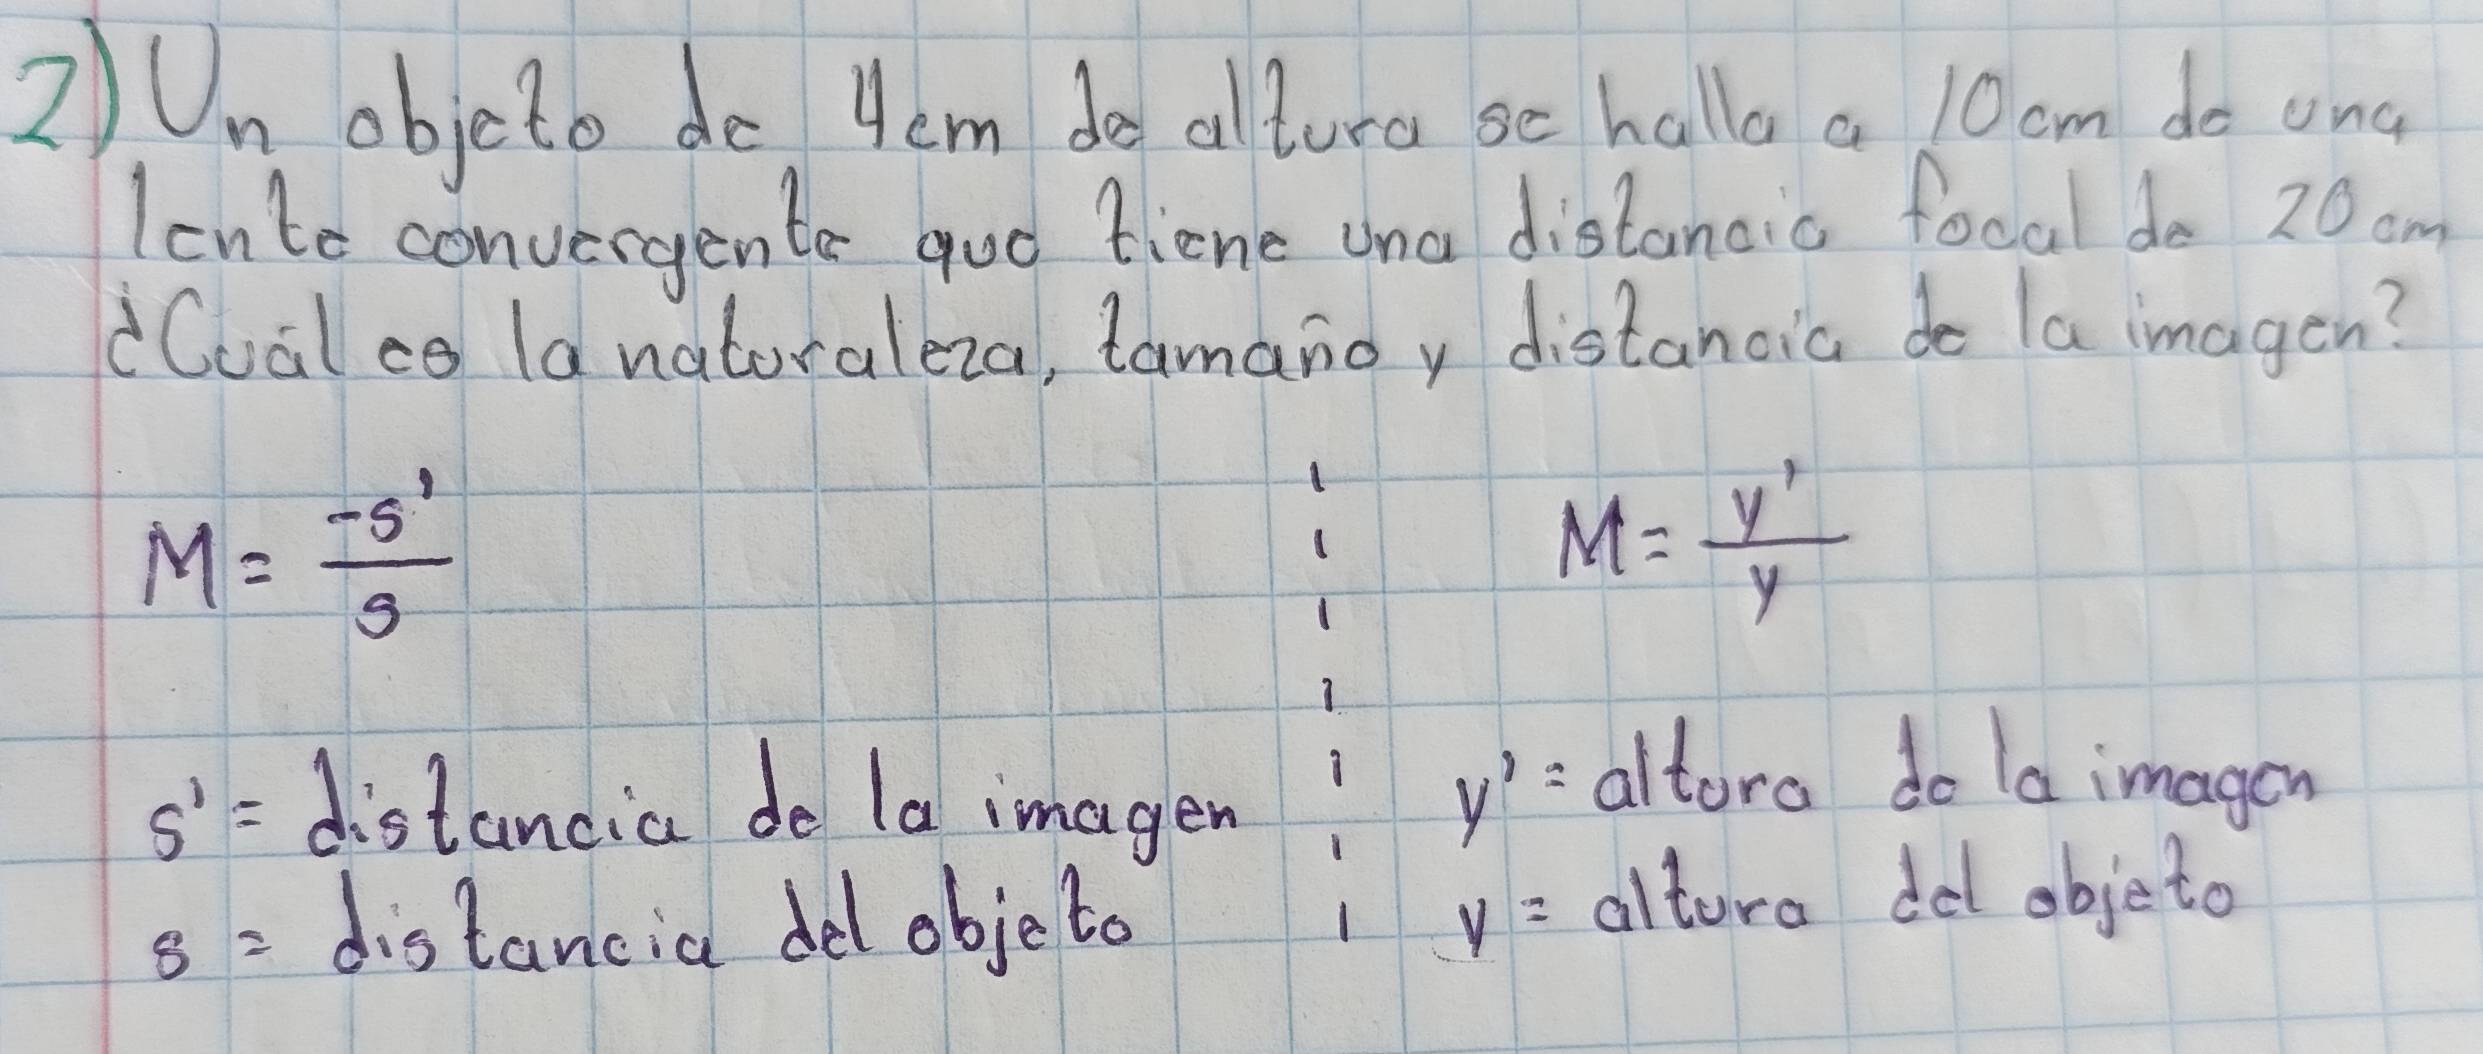 2) Un objeto de 4cm de altura se halla a 10cm de una
lente convergente que tiene una distancia focal de 20cm
¿Cuál es la naturaleza, tamaño y distancia de la imagen?
M = -s' / s
M = y' / y
s' = distancia de la imagen
s = distancia del objeto
y' = altura de la imagen
y = altura del objeto